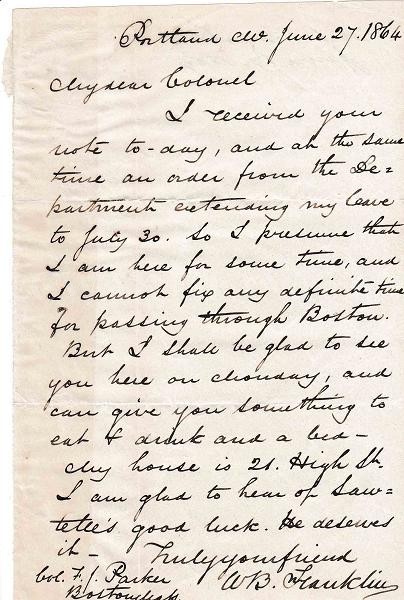 Portland Me. June 27. 1864
My dear Colonel
I received your
note to-day, and at the same
time an order from the De=
partment extending my leave
to July 30. So I presume that
I am here for some time, and
I cannot fix any definite time
for passing through Boston.
But I shall be glad to see
you here on Monday, and
can give you something to
eat & drink and a bed -
My house is 21. High St.
I am glad to hear of Saw=
telle's good luck. He deserves
it - Truly your friend
Col. F. J. Parker W B. Franklin
Boston